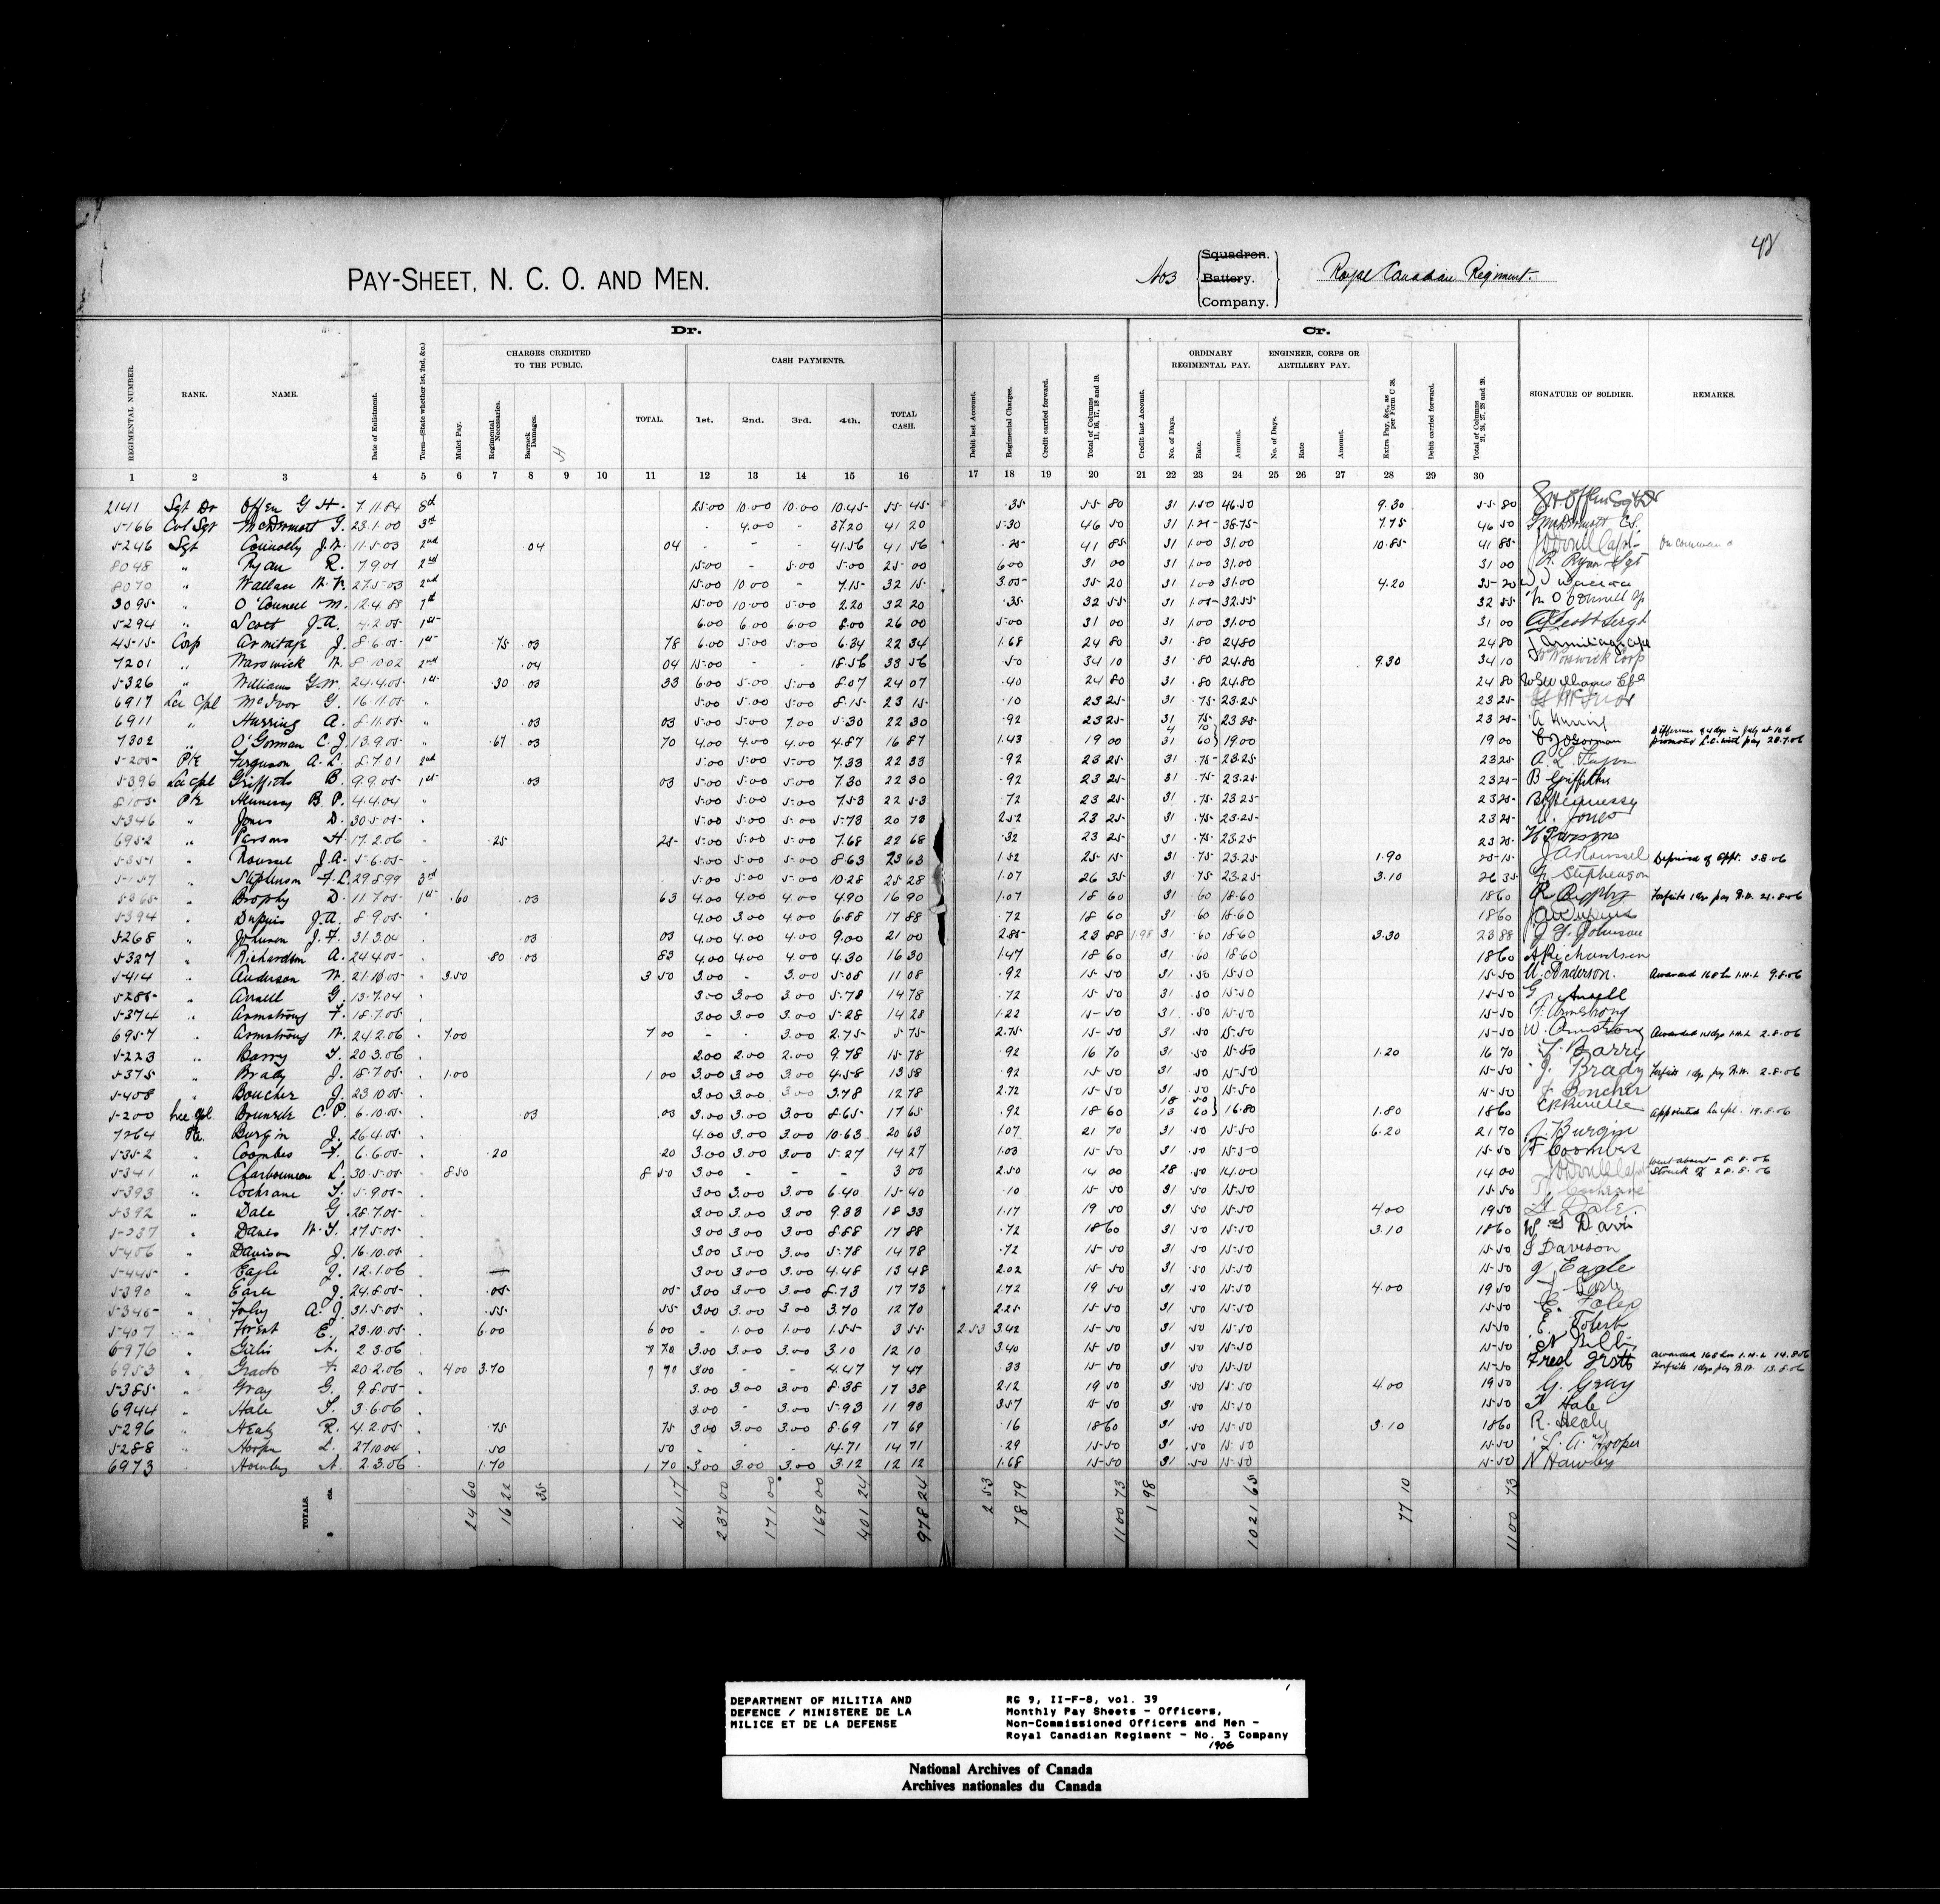 48
PAY-SHEET, N. C. O. AND MEN.
No 3 Squadron. Battery. Company. Royal Canadian Regiment.
Dr. Cr.
CHARGES CREDITED TO THE PUBLIC. CASH PAYMENTS. ORDINARY REGIMENTAL PAY. ENGINEER, CORPS OR ARTILLERY PAY.
REGIMENTAL NUMBER. RANK. NAME. Date of Enlistment. Term—(State whether 1st, 2nd, &c.) Mulct Pay. Regimental Necessaries. Barrack Damages. TOTAL. 1st. 2nd. 3rd. 4th. TOTAL CASH. Debit last Account. Regimental Charges. Credit carried forward. Total of Columns 11, 16, 17, 18 and 19. Credit last Account. No. of Days. Rate. Amount. No. of Days. Rate Amount. Extra Pay, &c., as per Form C 38. Debit carried forward. Total of Columns 21, 24, 27, 28 and 29. SIGNATURE OF SOLDIER. REMARKS.
1 2 3 4 5 6 7 8 9 10 11 12 13 14 15 16 17 18 19 20 21 22 23 24 25 26 27 28 29 30
2141 Sgt Dr Offen G H. 7.11.84 25.00 10.00 10.00 10.45 55 45 .35 55 80 31 1.50 46.50 9.30 55 80
5166 Col Sgt McDermott 23.1.00 3rd - 4.00 - 37.20 41 20 5.30 46 50 31 1.25 38.75 7.75 46 50
5246 Sgt Connolly 11.5.03 2nd .04 04 - - - 41.56 41 56 .25 41 85 31 1.00 31.00 10.85 41 85 On command
8048 " Ryan R. 7.9.01 2nd 15.00 - 5.00 5.00 25 00 6.00 31 00 31 1.00 31.00 31 00 R. Ryan Sgt
8070 " Wallace 27.5.03 2nd 15.00 10.00 - 7.15 32 15 3.05 35 20 31 1.00 31.00 4.20 35 20
3095 " O'Connell M. 12.4.88 15.00 10.00 5.00 2.20 32 20 .35 32 55 31 1.05 32.55 32 55
5294 " Scott J.A. 4.2.05 1st 6.00 6.00 6.00 8.00 26 00 5.00 31 00 31 1.00 31.00 31 00
4515 Corp Armitage J. 8.6.05 1st .75 .03 78 6.00 5.00 5.00 6.34 22 34 1.68 24 80 31 .80 24.80 24 80
7201 " 8.10.02 2nd .04 04 15.00 - - 18.56 33 56 .50 34 10 31 .80 24.80 9.30 34 10
5326 " Williams G.W. 24.4.05 1st .30 .03 33 6.00 5.00 5.00 8.07 24 07 .40 24 80 31 .80 24.80 24 80
6917 Lce Cpl McIvor G. 16.11.05 " 5.00 5.00 5.00 8.15 23 15 .10 23 25 31 .75 23.25 23 25
6911 " Herring A. 8.11.05 " .03 03 5.00 5.00 7.00 5.30 22 30 .92 23 25 31 .75 23.25 23 25
7302 " O'Gorman C.J. 13.9.05 " .67 .03 70 4.00 4.00 4.00 4.87 16 87 1.43 19 00 4 10 31 60 19.00 19 00 promoted L.C. with pay 28.7.06
5205 Pte Ferguson A.L. 8.7.01 2nd 5.00 5.00 5.00 7.33 22 33 .92 23 25 31 .75 23.25 23 25
5396 Lce Cpl Griffiths B. 9.9.05 1st .03 03 5.00 5.00 5.00 7.30 22 30 .92 23 25 31 .75 23.25 23 25 B Griffiths
8103 Pte Hennessy B.P. 4.4.04 " 5.00 5.00 5.00 7.53 22 53 .72 23 25 31 .75 23.25 23 25
5346 " Jones D. 30.5.05 5.00 5.00 5.00 5.73 20 73 2.52 23 25 31 .75 23.25 23 25
6952 " Parsons H. 17.2.06 .25 25 5.00 5.00 5.00 7.68 22 68 .32 23 25 31 .75 23.25 23 25 H Parsons
5351 " Roussel J.A. 5.6.05 5.00 5.00 5.00 8.63 23 63 1.52 25 15 31 .75 23.25 1.90 25 15 J A Roussel Deprived of Appt. 3.8.06
5157 " Stephenson F.L. 29.8.99 3rd 5.00 5.00 5.00 10.28 25 28 1.07 26 35 31 .75 23.25 3.10 26 35
5365 " Brophy D. 11.7.05 1st .60 .03 63 4.00 4.00 4.00 4.90 16 90 1.07 18 60 31 .60 18.60 18 60 Forfeits 1 dys pay R.W. 21.8.06
5394 " Dupuis J.A. 8.9.05 4.00 3.00 4.00 6.88 17 88 .72 18 60 31 .60 18.60 18 60
5268 " Johnson J.F. 31.3.04 .03 03 4.00 4.00 4.00 9.00 21 00 2.85 23 88 1.98 31 .60 18.60 3.30 23 88 J F Johnson
5327 " Richardson A. 24.4.05 .80 .03 83 4.00 4.00 4.00 4.30 16 30 1.47 18 60 31 .60 18.60 18 60 A Richardson
5414 " Anderson W. 21.10.05 3.50 3 50 3.00 - 3.00 5.08 11 08 .92 15 50 31 .50 15.50 15 50 W. Anderson. Awarded 168 hrs I.H.L 9.8.06
5285 " Ansell G. 13.7.04 3.00 3.00 3.00 5.78 14 78 .72 15 50 31 .50 15.50 15 50 G. Ansell
5374 " Armstrong F. 18.7.05 3.00 3.00 3.00 5.28 14 28 1.22 15 50 31 .50 15.50 15 50 F. Armstrong
6957 " Armstrong W. 24.2.06 7.00 7 00 - - 3.00 2.75 5 75 2.75 15 50 31 .50 15.50 15 50 W. Armstrong Awarded 14 dys I.H.L 2.8.06
5223 " Barry T. 20.3.06 2.00 2.00 2.00 9.78 15 78 .92 16 70 31 .50 15.50 1.20 16 70 T Barry
5375 " Brady J. 18.7.05 1.00 1 00 3.00 3.00 3.00 4.58 13 58 .92 15 50 31 .50 15.50 15 50 J. Brady Forfeits 1 dys pay R.W. 2.8.06
5408 " Boucher J. 23.10.05 3.00 3.00 3.00 3.78 12 78 2.72 15 50 31 .50 15.50 15 50 J Boucher
5200 Lce Cpl. C.P. 6.10.05 .03 .03 3.00 3.00 3.00 8.65 17 65 .92 18 60 18 50 13 60 16.80 1.80 18 60 appointed Lce Cpl. 19.8.06
7264 Pte. Burgin J. 26.4.05 4.00 3.00 3.00 10.63 20 63 1.07 21 70 31 .50 15.50 6.20 21 70 J. Burgin
5352 " Coombes F. 6.6.05 .20 .20 3.00 3.00 3.00 5.27 14 27 1.03 15 50 31 .50 15.50 15 50 F Coombes
5341 " Charbonneau L. 30.5.05 8.50 8 50 3.00 - - - 3 00 2.50 14 00 28 .50 14.00 14 00 went absent 8.8.06 Struck off 28.8.06
5393 " Cochrane T. 5.9.05 3.00 3.00 3.00 6.40 15 40 .10 15 50 31 .50 15.50 15 50 T. Cochrane
5392 " Dale G 28.7.05 3.00 3.00 3.00 9.33 18 33 1.17 19 50 31 .50 15.50 4.00 19 50
5237 " W.T. 27.5.05 3.00 3.00 3.00 8.88 17 88 .72 18 60 31 .50 15.50 3.10 18 60
5406 " Davison J. 16.10.05 3.00 3.00 3.00 5.78 14 78 .72 15 50 31 .50 15.50 15 50 J Davison
5445 " Eagle J. 12.1.06 3.00 3.00 3.00 4.48 13 48 2.02 15 50 31 .50 15.50 15 50 J Eagle
5390 " Earle J. 24.8.05 .05 05 3.00 3.00 3.00 8.73 17 73 1.72 19 50 31 .50 15.50 4.00 19 50
5345 " Foley A.J. 31.5.05 .55 55 3.00 3.00 3.00 3.70 12 70 2.25 15 50 31 .50 15.50 15 50
5407 " E. 23.10.05 6.00 6 00 - 1.00 1.00 1.55 3 55 2.53 3.42 15 50 31 .50 15.50 15 50
6976 " 2.3.06 3.00 3.00 3.00 3.10 12 10 3.40 15 50 31 .50 15.50 15 50
6953 " F. 20.2.06 4.00 3.70 7 70 3.00 - - 4.47 7 47 .33 15 50 31 .50 15.50 15 50 awarded 168 hrs I.H.L 14.8.06 Forfeits 1 dys pay R.W. 13.8.06
5385 " Gray G. 9.8.05 3.00 3.00 3.00 8.38 17 38 2.12 19 50 31 .50 15.50 4.00 19 50 G. Gray
6944 " Hale T. 3.6.06 3.00 - 3.00 5.93 11 93 3.57 15 50 31 .50 15.50 15 50 T Hale
5296 " Healy R. 4.2.05 .75 75 3.00 3.00 3.00 8.69 17 69 .16 18 60 31 .50 15.50 3.10 18 60 R. Healy
5288 " Hooper L. 27.10.04 .50 50 - - - 14.71 14 71 .29 15 50 31 .50 15.50 15 50 L. A. Hooper
6973 " 2.3.06 1.70 1 70 3.00 3.00 3.00 3.12 12 12 1.68 15 50 31 .50 15.50 15 50
TOTALS. $ cts. 24 60 16 22 35 41 17 237 00 171 00 169 00 401 24 978 24 2 53 78 79 1100 73 1 98 1021 65 77 10 1100 73
DEPARTMENT OF MILITIA AND DEFENCE / MINISTERE DE LA MILICE ET DE LA DEFENSE
RG 9, II-F-8, vol. 39
Monthly Pay Sheets - Officers,
Non-Commissioned Officers and Men -
Royal Canadian Regiment - No. 3 Company
1906
National Archives of Canada
Archives nationales du Canada